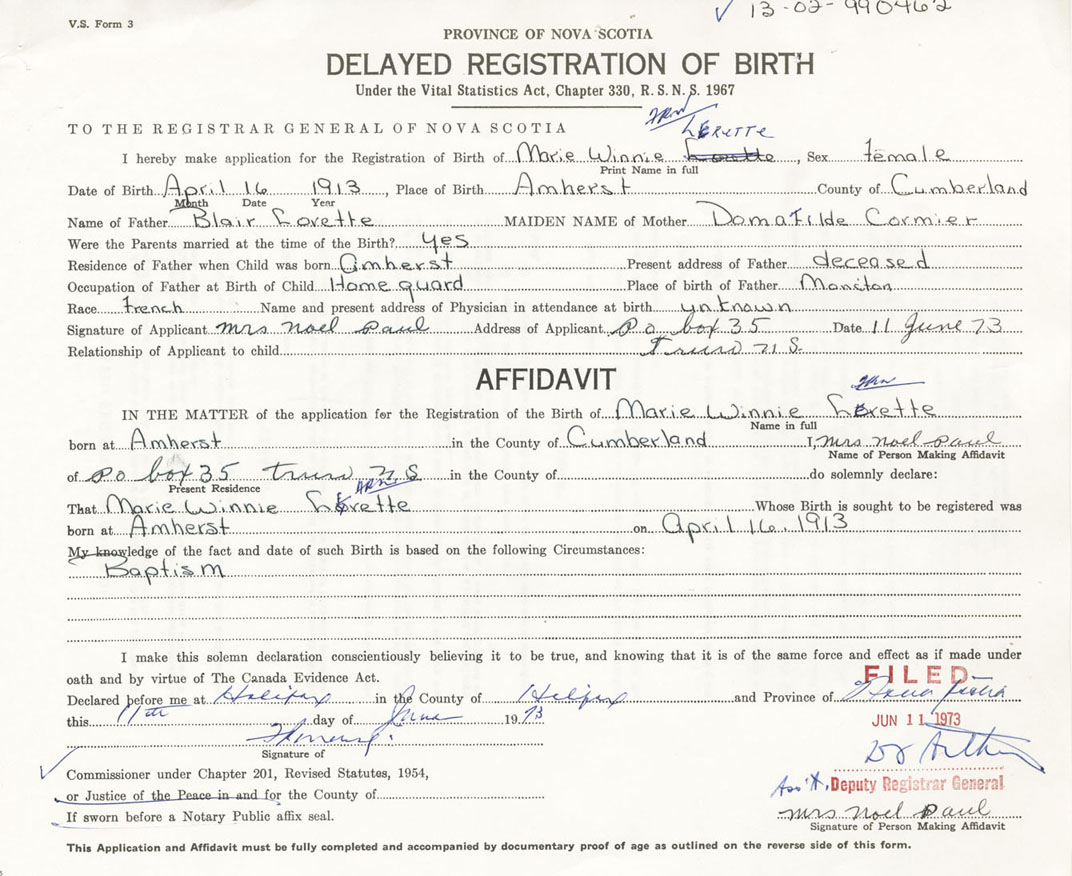 V.S. Form 3
13-02-990462
PROVINCE OF NOVA SCOTIA
DELAYED REGISTRATION OF BIRTH
Under the Vital Statistics Act, Chapter 330, R. S. N. S. 1967
TO THE REGISTRAR GENERAL OF NOVA SCOTIA
LERETTE
I hereby make application for the Registration of Birth of Marie Winnie Lovette, Sex female
Print Name in full
Date of Birth April 16 1913, Place of Birth Amherst County of Cumberland
Month Date Year
Name of Father Blair Lovette MAIDEN NAME of Mother Domatilde Cormier
Were the Parents married at the time of the Birth? yes
Residence of Father when Child was born Amherst Present address of Father deceased
Occupation of Father at Birth of Child Home guard Place of birth of Father Moncton
Race french Name and present address of Physician in attendance at birth unknown
Signature of Applicant mrs noel paul Address of Applicant P o box 35 Date 11 June 73
Relationship of Applicant to child truro n S.
AFFIDAVIT
IN THE MATTER of the application for the Registration of the Birth of Marie Winnie Lerette
Name in full
born at Amherst in the County of Cumberland I, mrs noel paul
Name of Person Making Affidavit
of Po box 35 truro n. S in the County of do solemnly declare:
Present Residence
That Marie Winnie Lerette Whose Birth is sought to be registered was
born at Amherst on April 16, 1913
My knowledge of the fact and date of such Birth is based on the following Circumstances:
Baptism
I make this solemn declaration conscientiously believing it to be true, and knowing that it is of the same force and effect as if made under
oath and by virtue of The Canada Evidence Act.
FILED
Declared before me at Halifax in the County of Halifax and Province of Nova Scotia
this 11th day of June 1973
JUN 11 1973
Signature of
Commissioner under Chapter 201, Revised Statutes, 1954,
Ass't. Deputy Registrar General
or Justice of the Peace in and for the County of
mrs noel paul
If sworn before a Notary Public affix seal.
Signature of Person Making Affidavit
This Application and Affidavit must be fully completed and accompanied by documentary proof of age as outlined on the reverse side of this form.